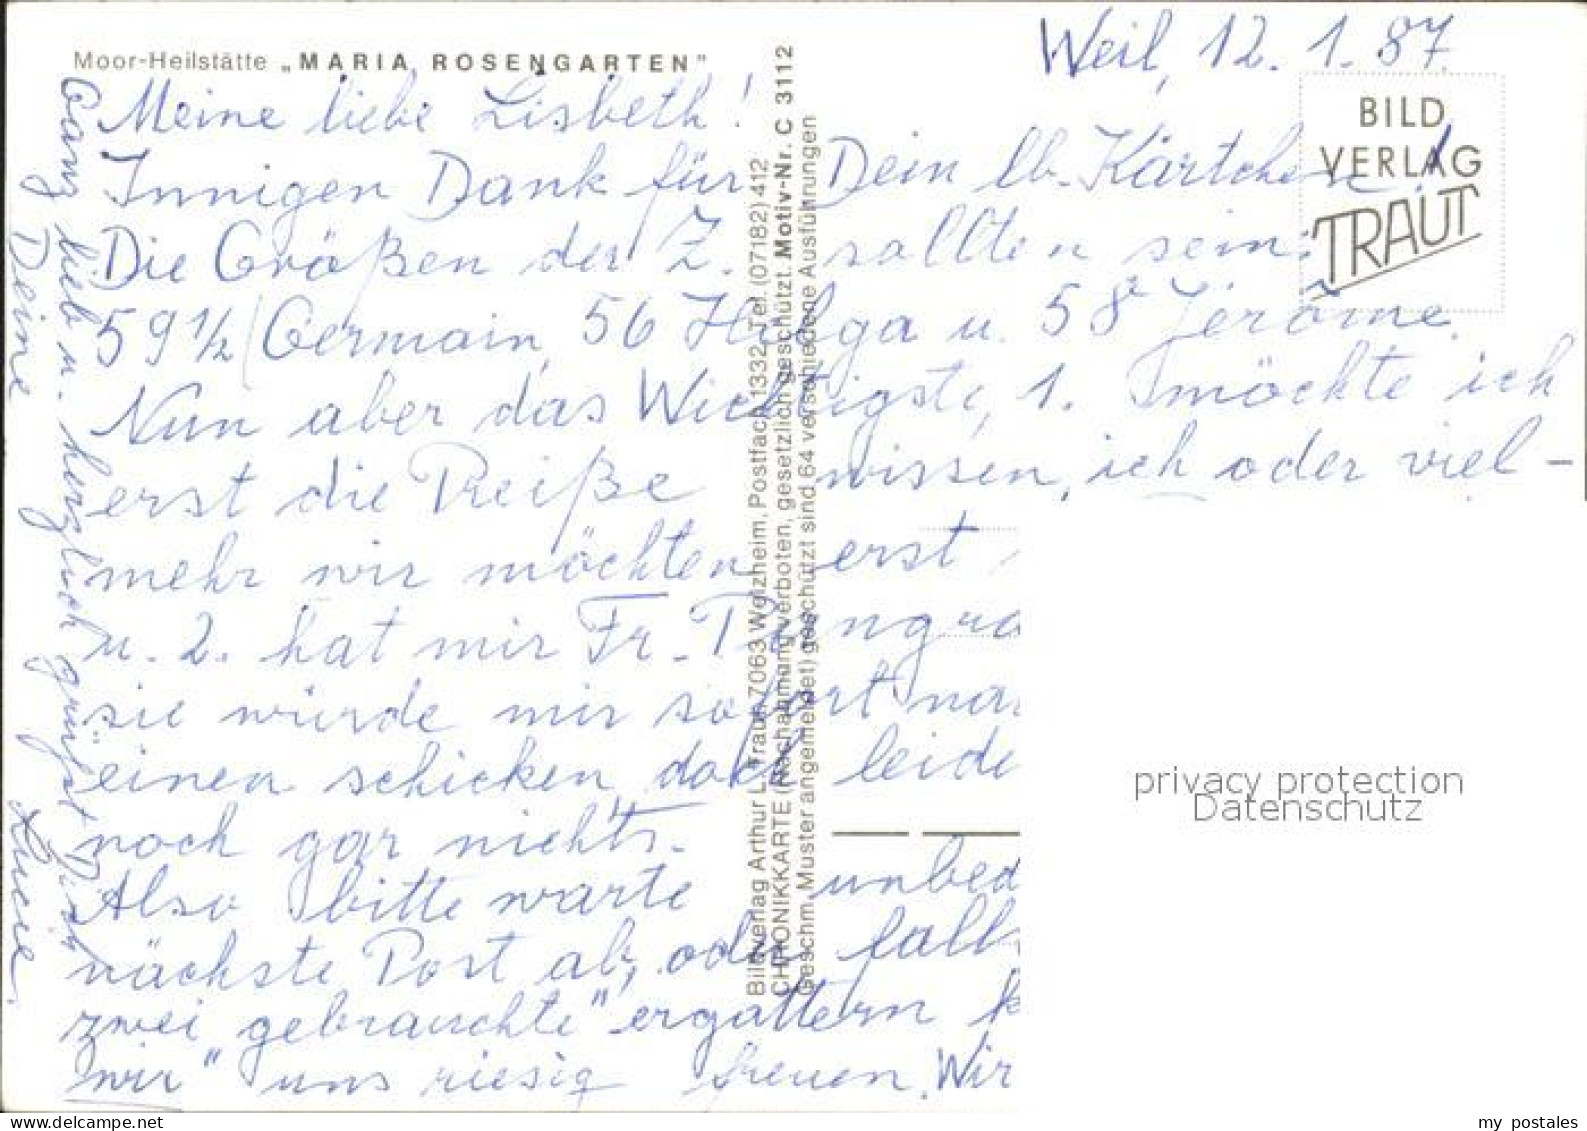 Moor-Heilstätte „MARIA ROSENGARTEN"
Weil, 12. 1. 87.
BILD
VERLAG
TRAUT
Meine liebe Lisbeth!
Innigen Dank für Dein lb. Kärtchen.
Die Größen der Z. sollten sein:
59 1/2 Germain, 56 Helga u. 58 Jerôme.
Nun aber das Wichtigste, 1. möchte ich
erst die Preiße wissen, ich oder viel-
mehr wir möchten erst
u. 2. hat mir Fr.
sie würde mir sofort
einen schicken, doch leide
noch gar nichts.
Also bitte warte unbed
nächste Post ab, oder falls
zwei „gebrauchte" ergattern k
„wir" uns riesig freuen. Wir
Ganz lieb u. herzlich grüßt Dich
Deine
Bildverlag Arthur L. Traut, 7063 Welzheim, Postfach 1332, Tel. (07182) 412
CHRONIKKARTE (Nachahmung verboten, gesetzlich geschützt. Motiv-Nr. C 3112
Geschm. Muster angemeldet) geschützt sind 64 verschiedene Ausführungen
privacy protection
Datenschutz
my postales